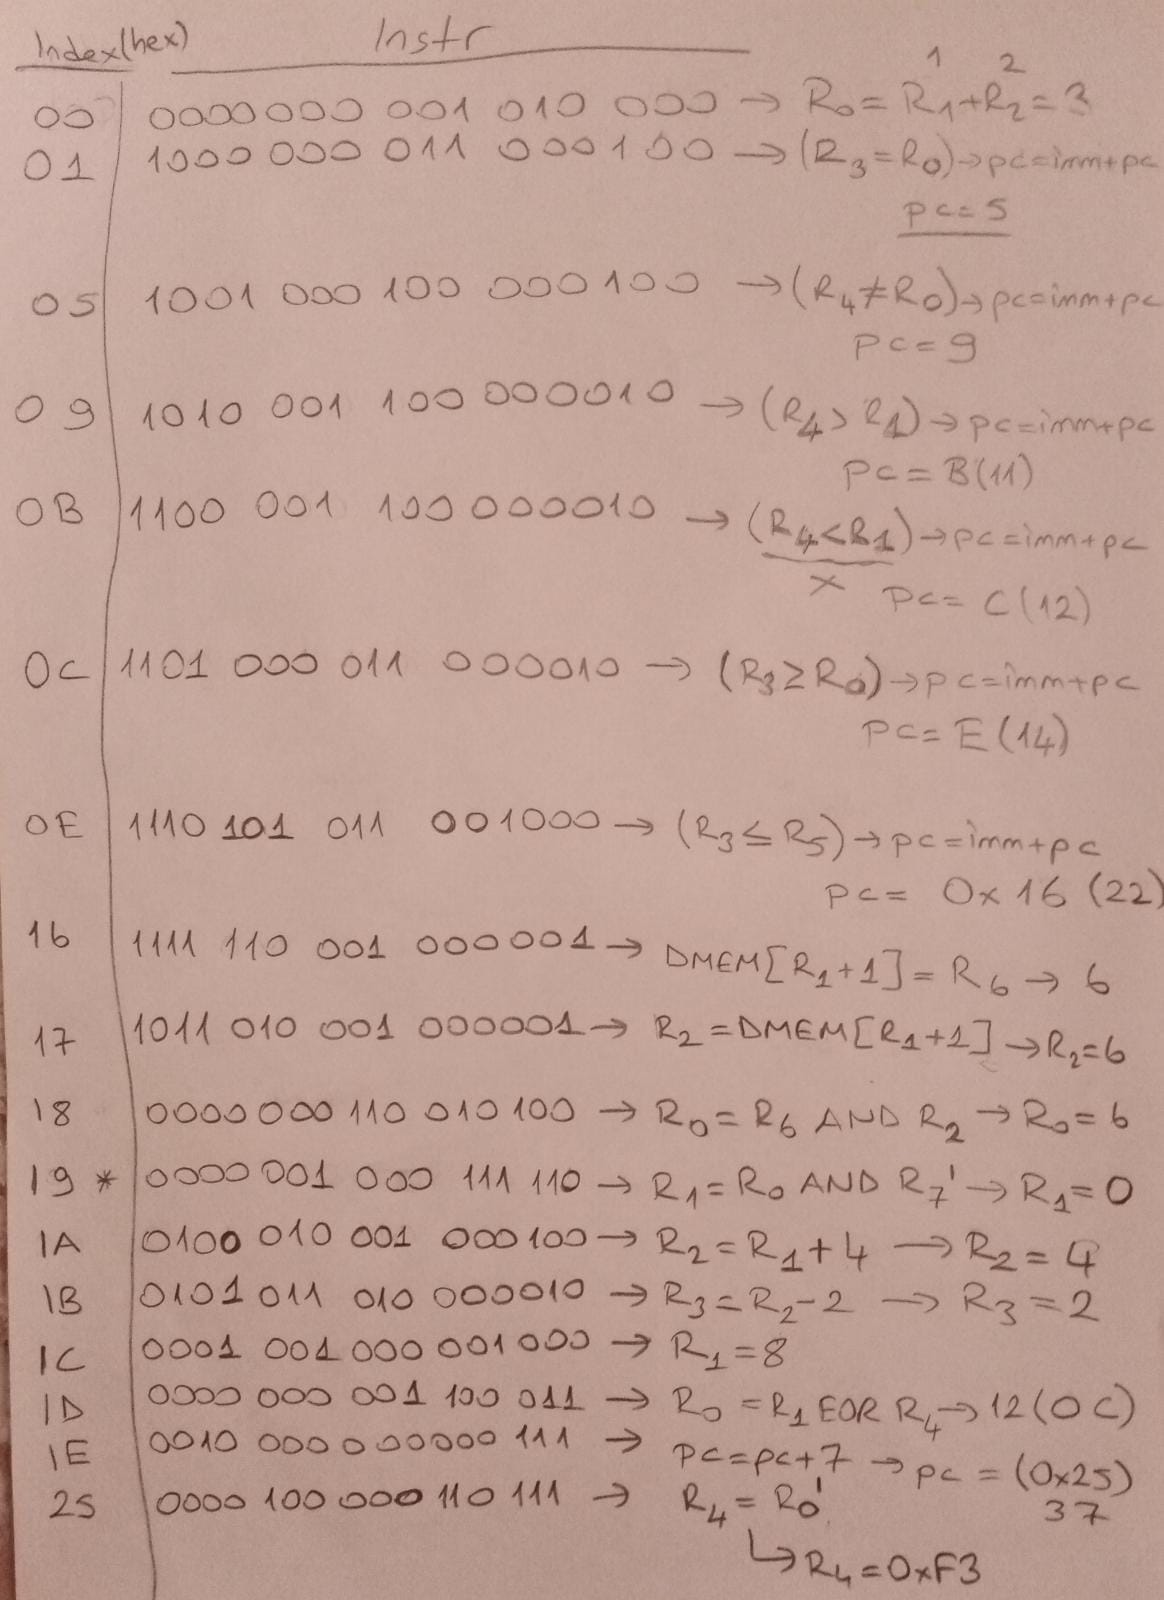 Index(hex) Instr
1 2
00 0000 000 001 010 000 → R0 = R1+R2 = 3
01 1000 000 011 000100 → (R3=R0) → pc=imm+pc
pc=5
05 1001 000 100 000100 → (R4≠R0) → pc=imm+pc
pc=9
09 1010 001 100 000010 → (R4>R1) → pc=imm+pc
pc=B(11)
0B 1100 001 100 000010 → (R4<R1) → pc=imm+pc
x pc= C(12)
0C 1101 000 011 000010 → (R3≥R0) → pc=imm+pc
pc= E(14)
0E 1110 101 011 001000 → (R3≤R5) → pc=imm+pc
pc= 0x16 (22)
16 1111 110 001 000001 → DMEM[R1+1] = R6 → 6
17 1011 010 001 000001 → R2=DMEM[R1+1] → R2=6
18 0000 000 110 010 100 → R0=R6 AND R2 → R0=6
19 * 0000 001 000 111 110 → R1=R0 AND R7' → R1=0
1A 0100 010 001 000100 → R2=R1+4 → R2=4
1B 0101 011 010 000010 → R3=R2-2 → R3=2
1C 0001 001 000 001 000 → R1=8
1D 0000 000 001 100 011 → R0=R1 EOR R4 → 12(0C)
1E 0010 000 000000 111 → pc=pc+7 → pc = (0x25)
25 0000 100 000 110 111 → R4 = R0' 37
↳ R4=0xF3